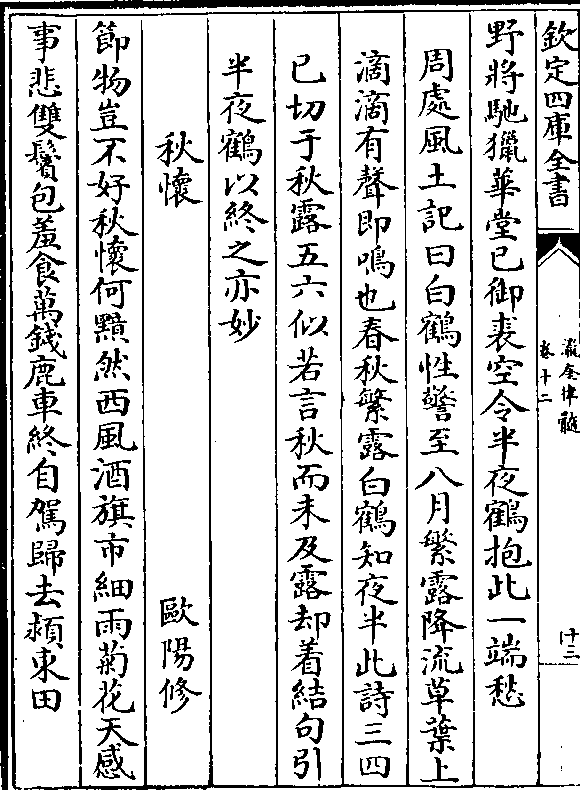 欽定四庫全書
瀛奎律髓
卷十二
十三
野將馳獵華堂已御裘空令半夜鶴抱此一端愁
周處風土記曰白鶴性警至八月繁露降流草葉上
滴滴有聲即鳴也春秋繁露白鶴知夜半此詩三四
已切于秋露五六似若言秋而未及露却着結句引
半夜鶴以終之亦妙
秋懷
歐陽修
節物豈不好秋懷何黯然西風酒旗市細雨菊花天感
事悲雙鬢包羞食萬錢鹿車終自駕歸去潁東田